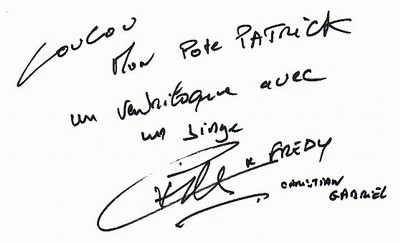 COUCOU
MON Pote PATRICK
un ventriloque avec
un singe
FREDY
CHRISTIAN
GABRIEL